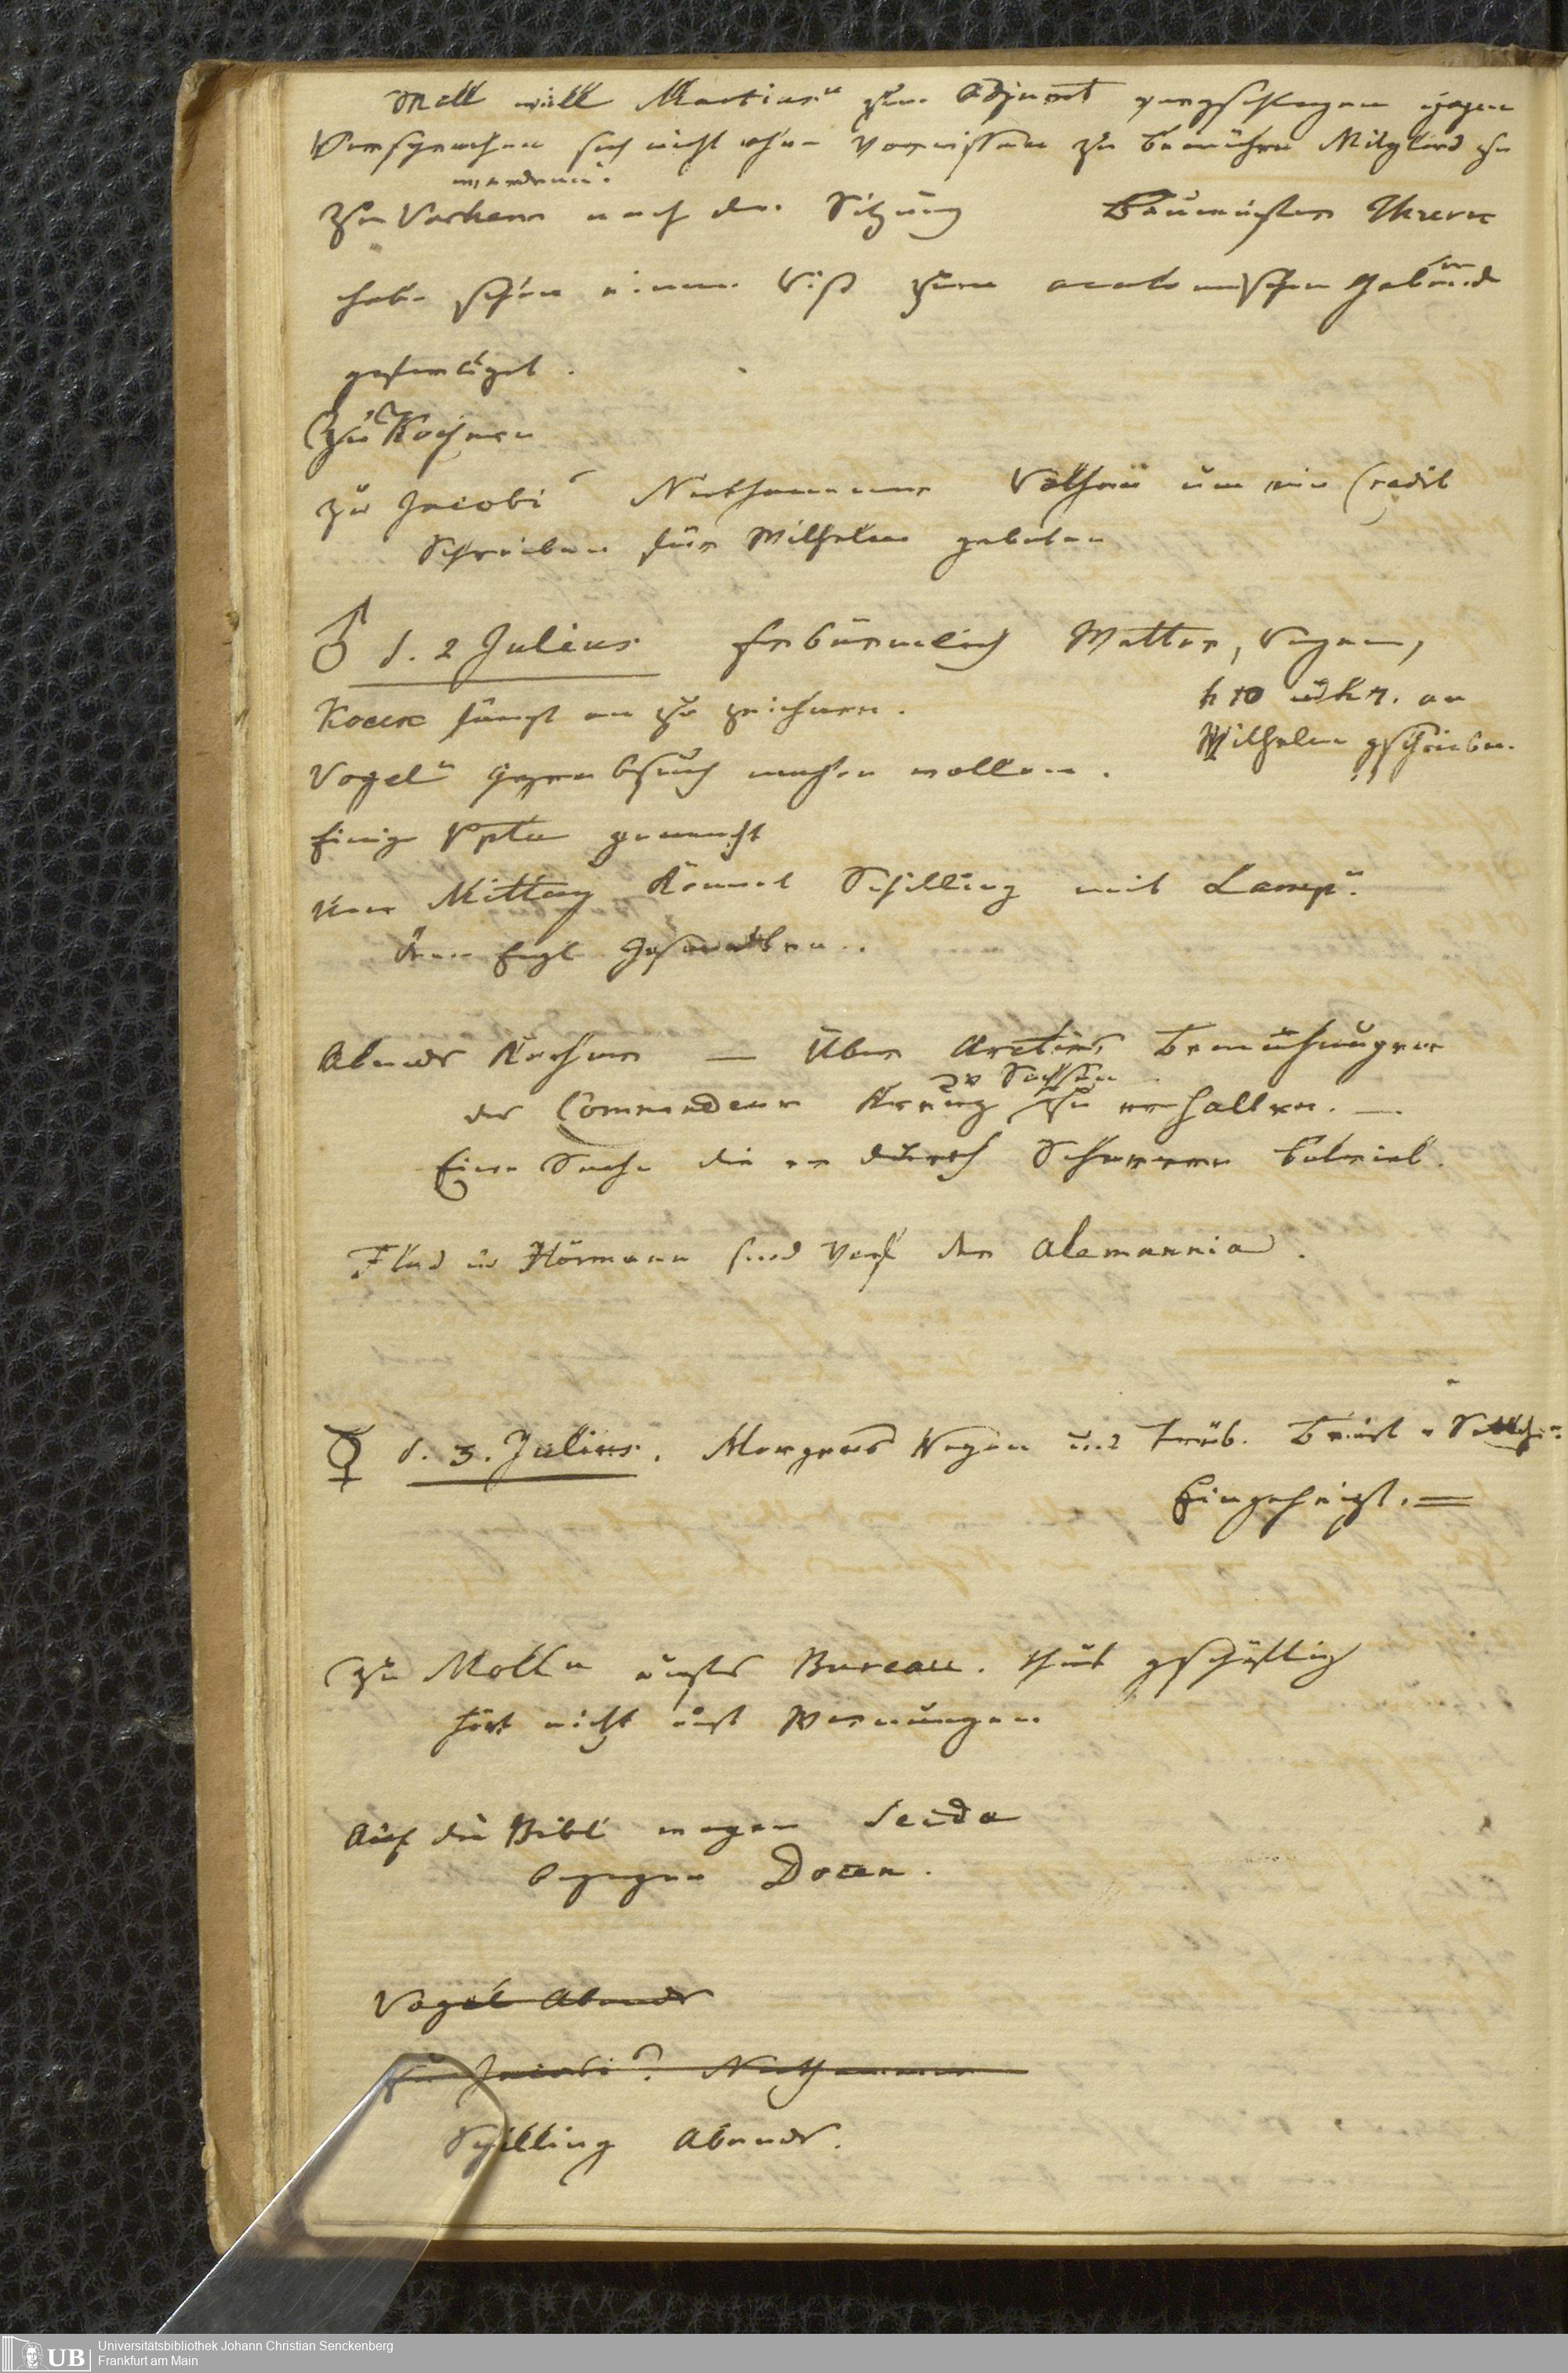 Moll will Martius zum Adjunct vorgeschlagen gegen
Versprechen sich nicht ohne Vorwissen zu bemühen Mitglied zu
werden.
zu Verkenn nach der Sitzung Baumeister Thurn
habe schon einen Riß zum anatomischen Gebäude
gefertiget.
Zu Kochen
zu Jacobi Niethammer Rothen um ein Credit
Schreiben für Wilhelm gebeten
♂ d. 2 Julius Erbärmlich Wetter, Regen,
Koeck fängt an zu zeichnen.
h 10 u. h 7. an
Wilhelm geschrieben.
Vogel Gegenbesuch machen wollen.
Einige Ppta gemacht
Um Mittag kommt Schilling mit Lamp.
dem Engl. Gesandten.
Abends Aerchner — Über Aretins Bemühungen
v. Sachsen
das Commandeur Kreuz zu erhalten. —
Eine Sache die er durch Scherer betrieb.
Flad u. Hörmann sind Verf. der Alemannia.
☿ d. 3. Julius. Morgens Regen und trüb.
Eingeheizt. =
Zu Moll aufs Bureau. thut geschäftig
hört nicht auf Warnungen
Auf die Bibl. wegen Seida
gegen Docen.
Vogel Abends
zu Jacobi? Niethammer
Schilling Abends.
UB Universitätsbibliothek Johann Christian Senckenberg
Frankfurt am Main